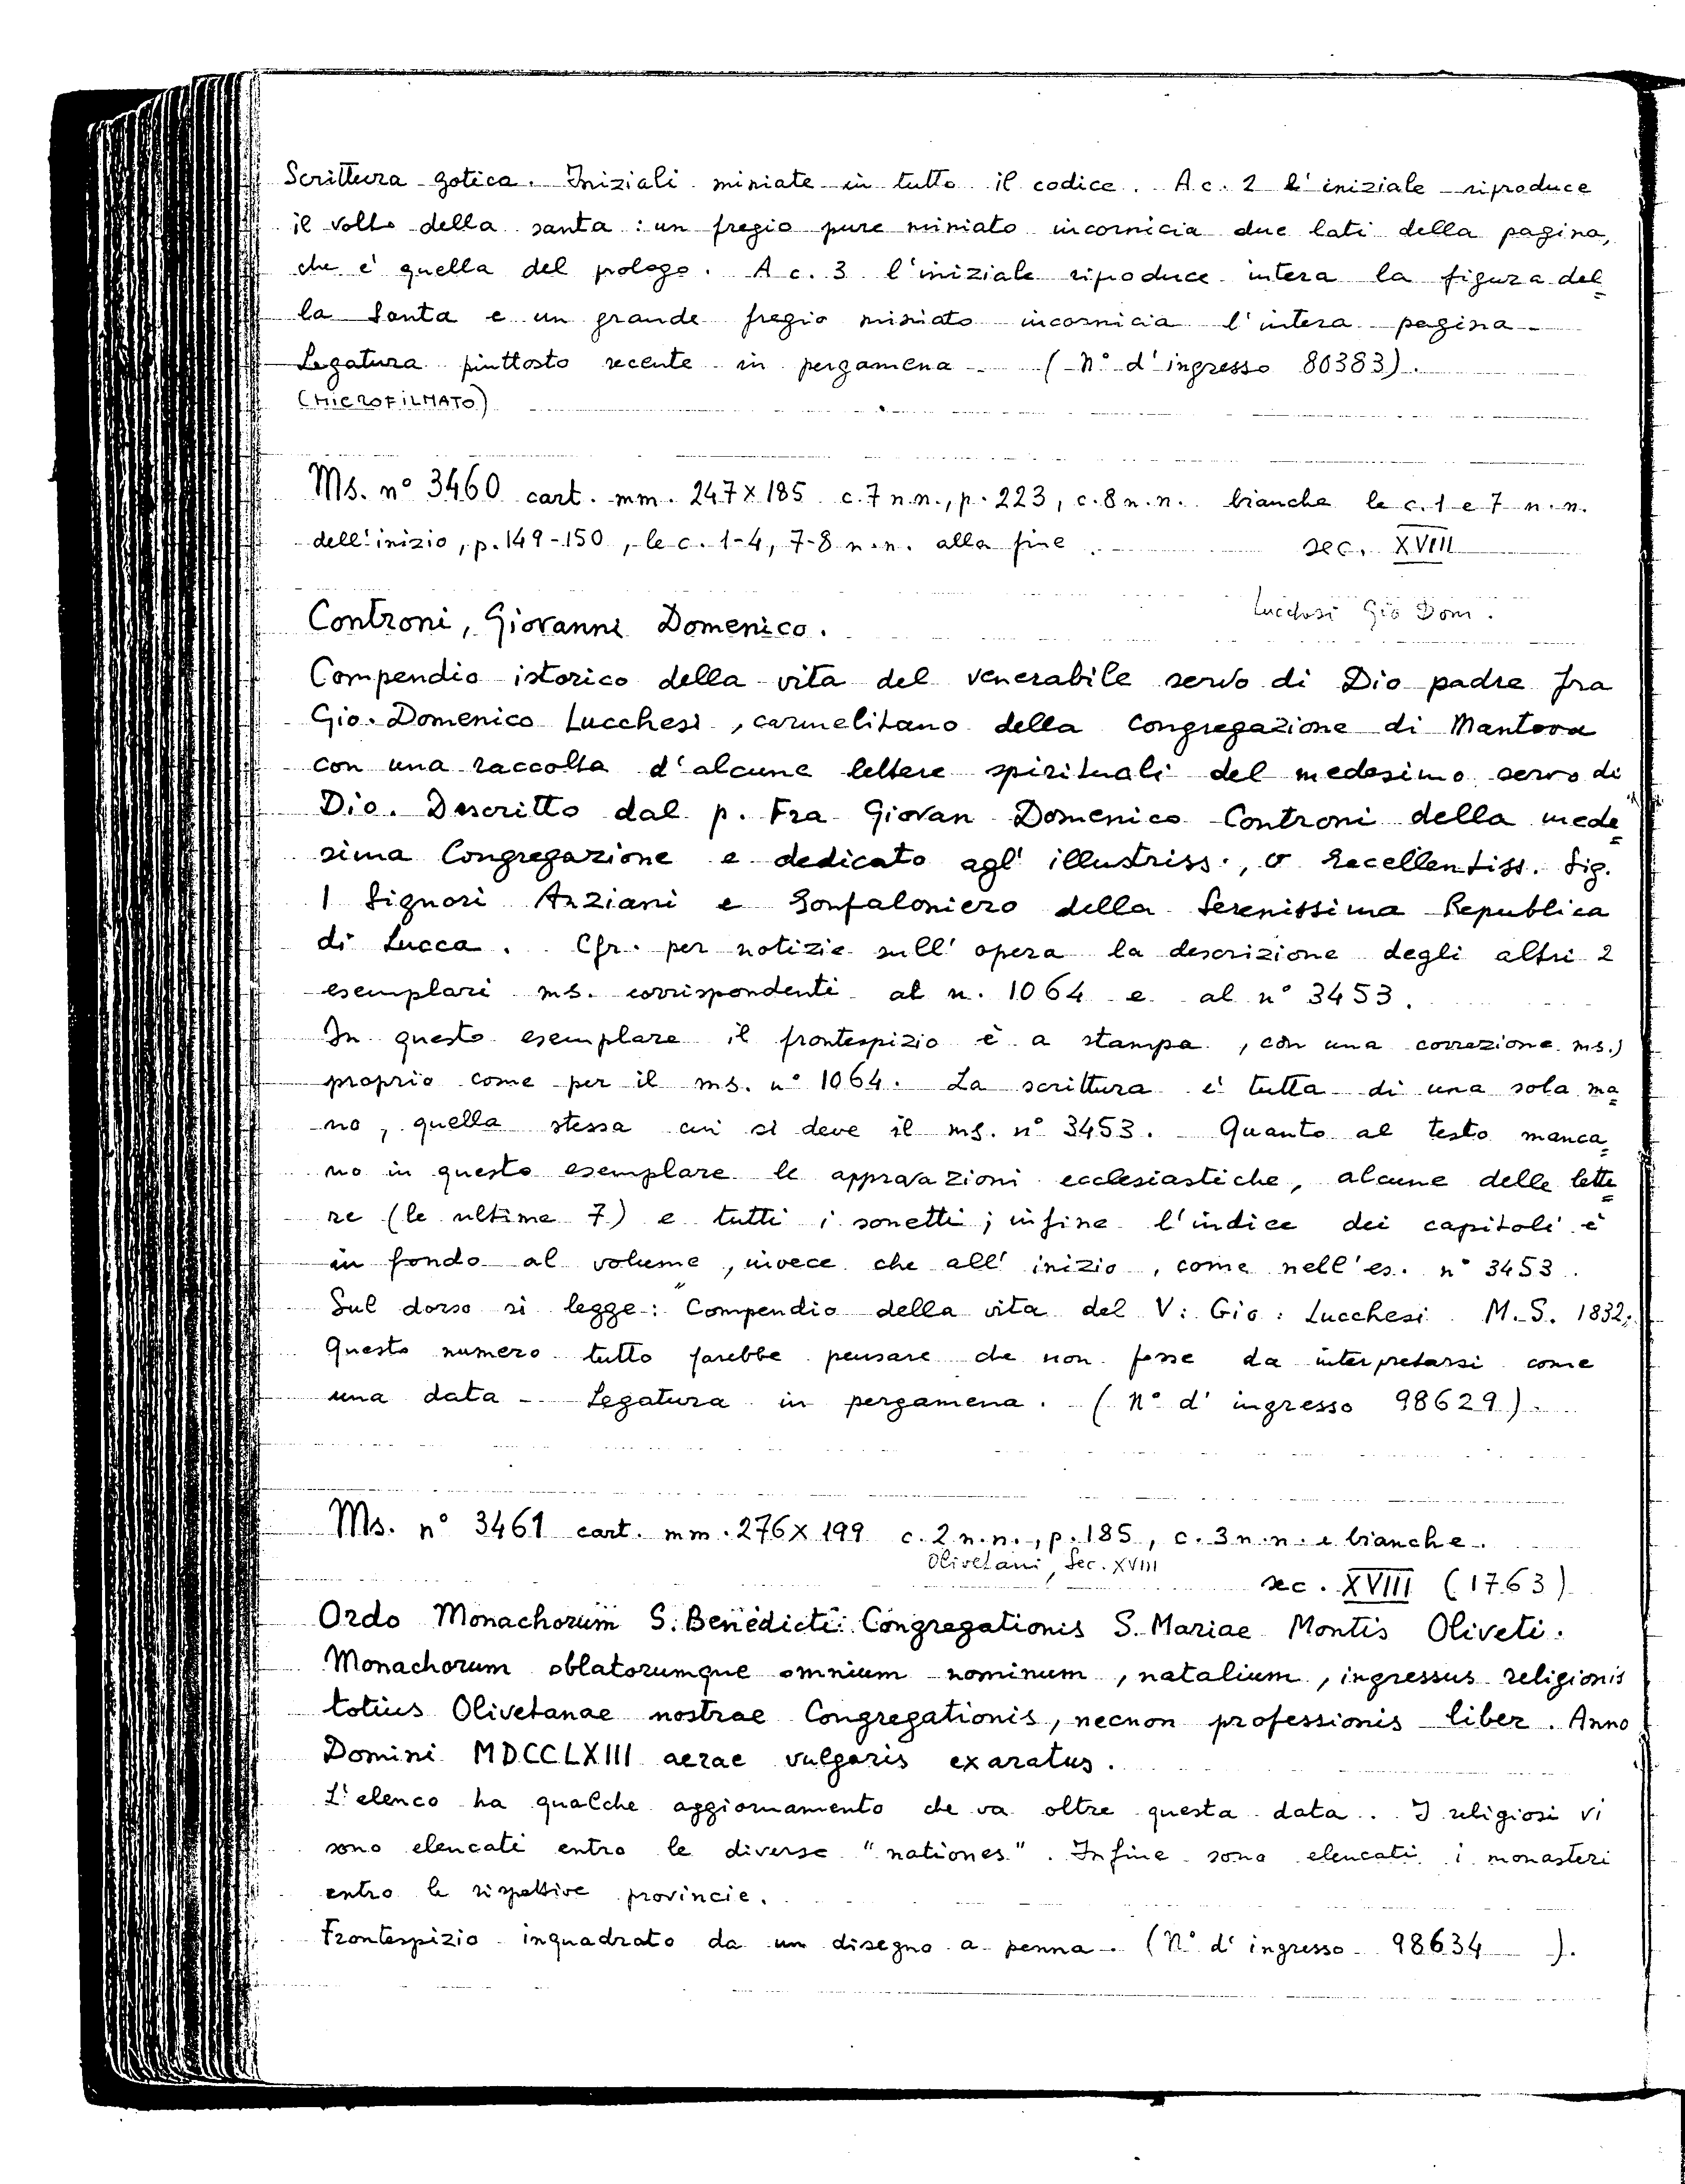 Scrittura gotica. Iniziali miniate in tutto il codice. A c. 2 l'iniziale riproduce
il volto della santa: un fregio pure miniato incornicia due lati della pagina,
che è quella del prologo. A c. 3 l'iniziale riproduce intera la figura del=
la Santa e un grande fregio miniato incornicia l'intera pagina.
Legatura piuttosto recente in pergamena. (N° d'ingresso 80383).
(MICROFILMATO)
Ms. n° 3460 cart. mm. 247x185 c. 7 n.n., p. 223, c. 8 n.n. bianche le c. 1 e 7 n.n.
dell'inizio, p. 149-150, le c. 1-4, 7-8 n.n. alla fine. sec. XVIII
Lucchesi Gio Dom.
Controni, Giovanni Domenico.
Compendio istorico della vita del venerabile servo di Dio padre fra
Gio. Domenico Lucchesi, carmelitano della Congregazione di Mantova
con una raccolta d'alcune lettere spirituali del medesimo servo di
Dio. Descritto dal p. Fra Giovan Domenico Controni della mede=
sima Congregazione e dedicato agl' illustriss., Eccellentiss. Sig.
I Signori Anziani e Gonfaloniero della Serenissima Republica
di Lucca. Cfr. per notizie sull' opera la descrizione degli altri 2
esemplari ms. corrispondenti al n. 1064 e al n° 3453.
In questo esemplare il frontespizio è a stampa, con una correzione ms.)
proprio come per il ms. n° 1064. La scrittura è tutta di una sola ma=
no, quella stessa cui si deve il ms. n° 3453. Quanto al testo manca=
no in questo esemplare le approvazioni ecclesiastiche, alcune delle lette=
re (le ultime 7) e tutti i sonetti; infine l'indice dei capitoli è
in fondo al volume, invece che all' inizio, come nell'es. n° 3453.
Sul dorso si legge: "Compendio della vita del V: Gio: Lucchesi M.S. 1832;
Questo numero tutto farebbe pensare che non fosse da interpretarsi come
una data. Legatura in pergamena. (N° d' ingresso 98629).
Ms. n° 3461 cart. mm. 276x199 c. 2 n.n., p. 185, c. 3 n.n. e bianche.
Olivetani, Sec. XVIII
sec. XVIII (1763)
Ordo Monachorum S. Benedicti Congregationis S. Mariae Montis Oliveti.
Monachorum oblatorumque omnium nominum, natalium, ingressus religionis
totius Olivetanae nostrae Congregationis, necnon professionis liber. Anno
Domini MDCCLXIII aerae vulgaris exaratus.
L'elenco ha qualche aggiornamento che va oltre questa data. I religiosi vi
sono elencati entro le diverse "nationes". Infine sono elencati i monasteri
entro le rispettive provincie.
Frontespizio inquadrato da un disegno a penna. (N° d' ingresso 98634 ).